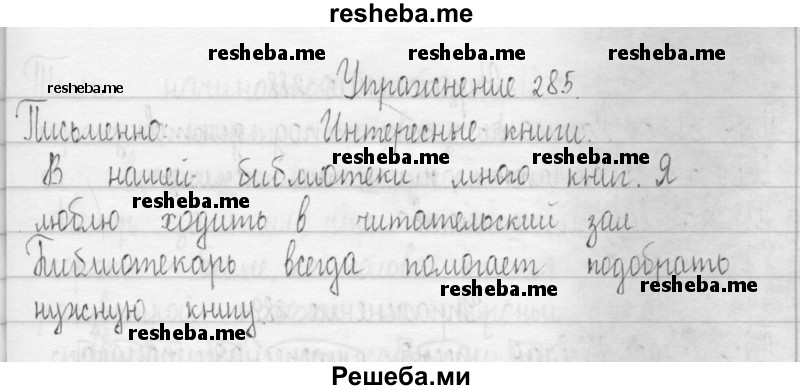 resheba.me
resheba.me resheba.me
resheba.me Упражнение 285.
Письменно: Интересные книги.
resheba.me resheba.me
В нашей библиотеки много книг. Я
resheba.me
люблю ходить в читательский зал
Библиотекарь всегда помогает подобрать
resheba.me resheba.me
нужную книгу.
resheba.me
Решеба.ми